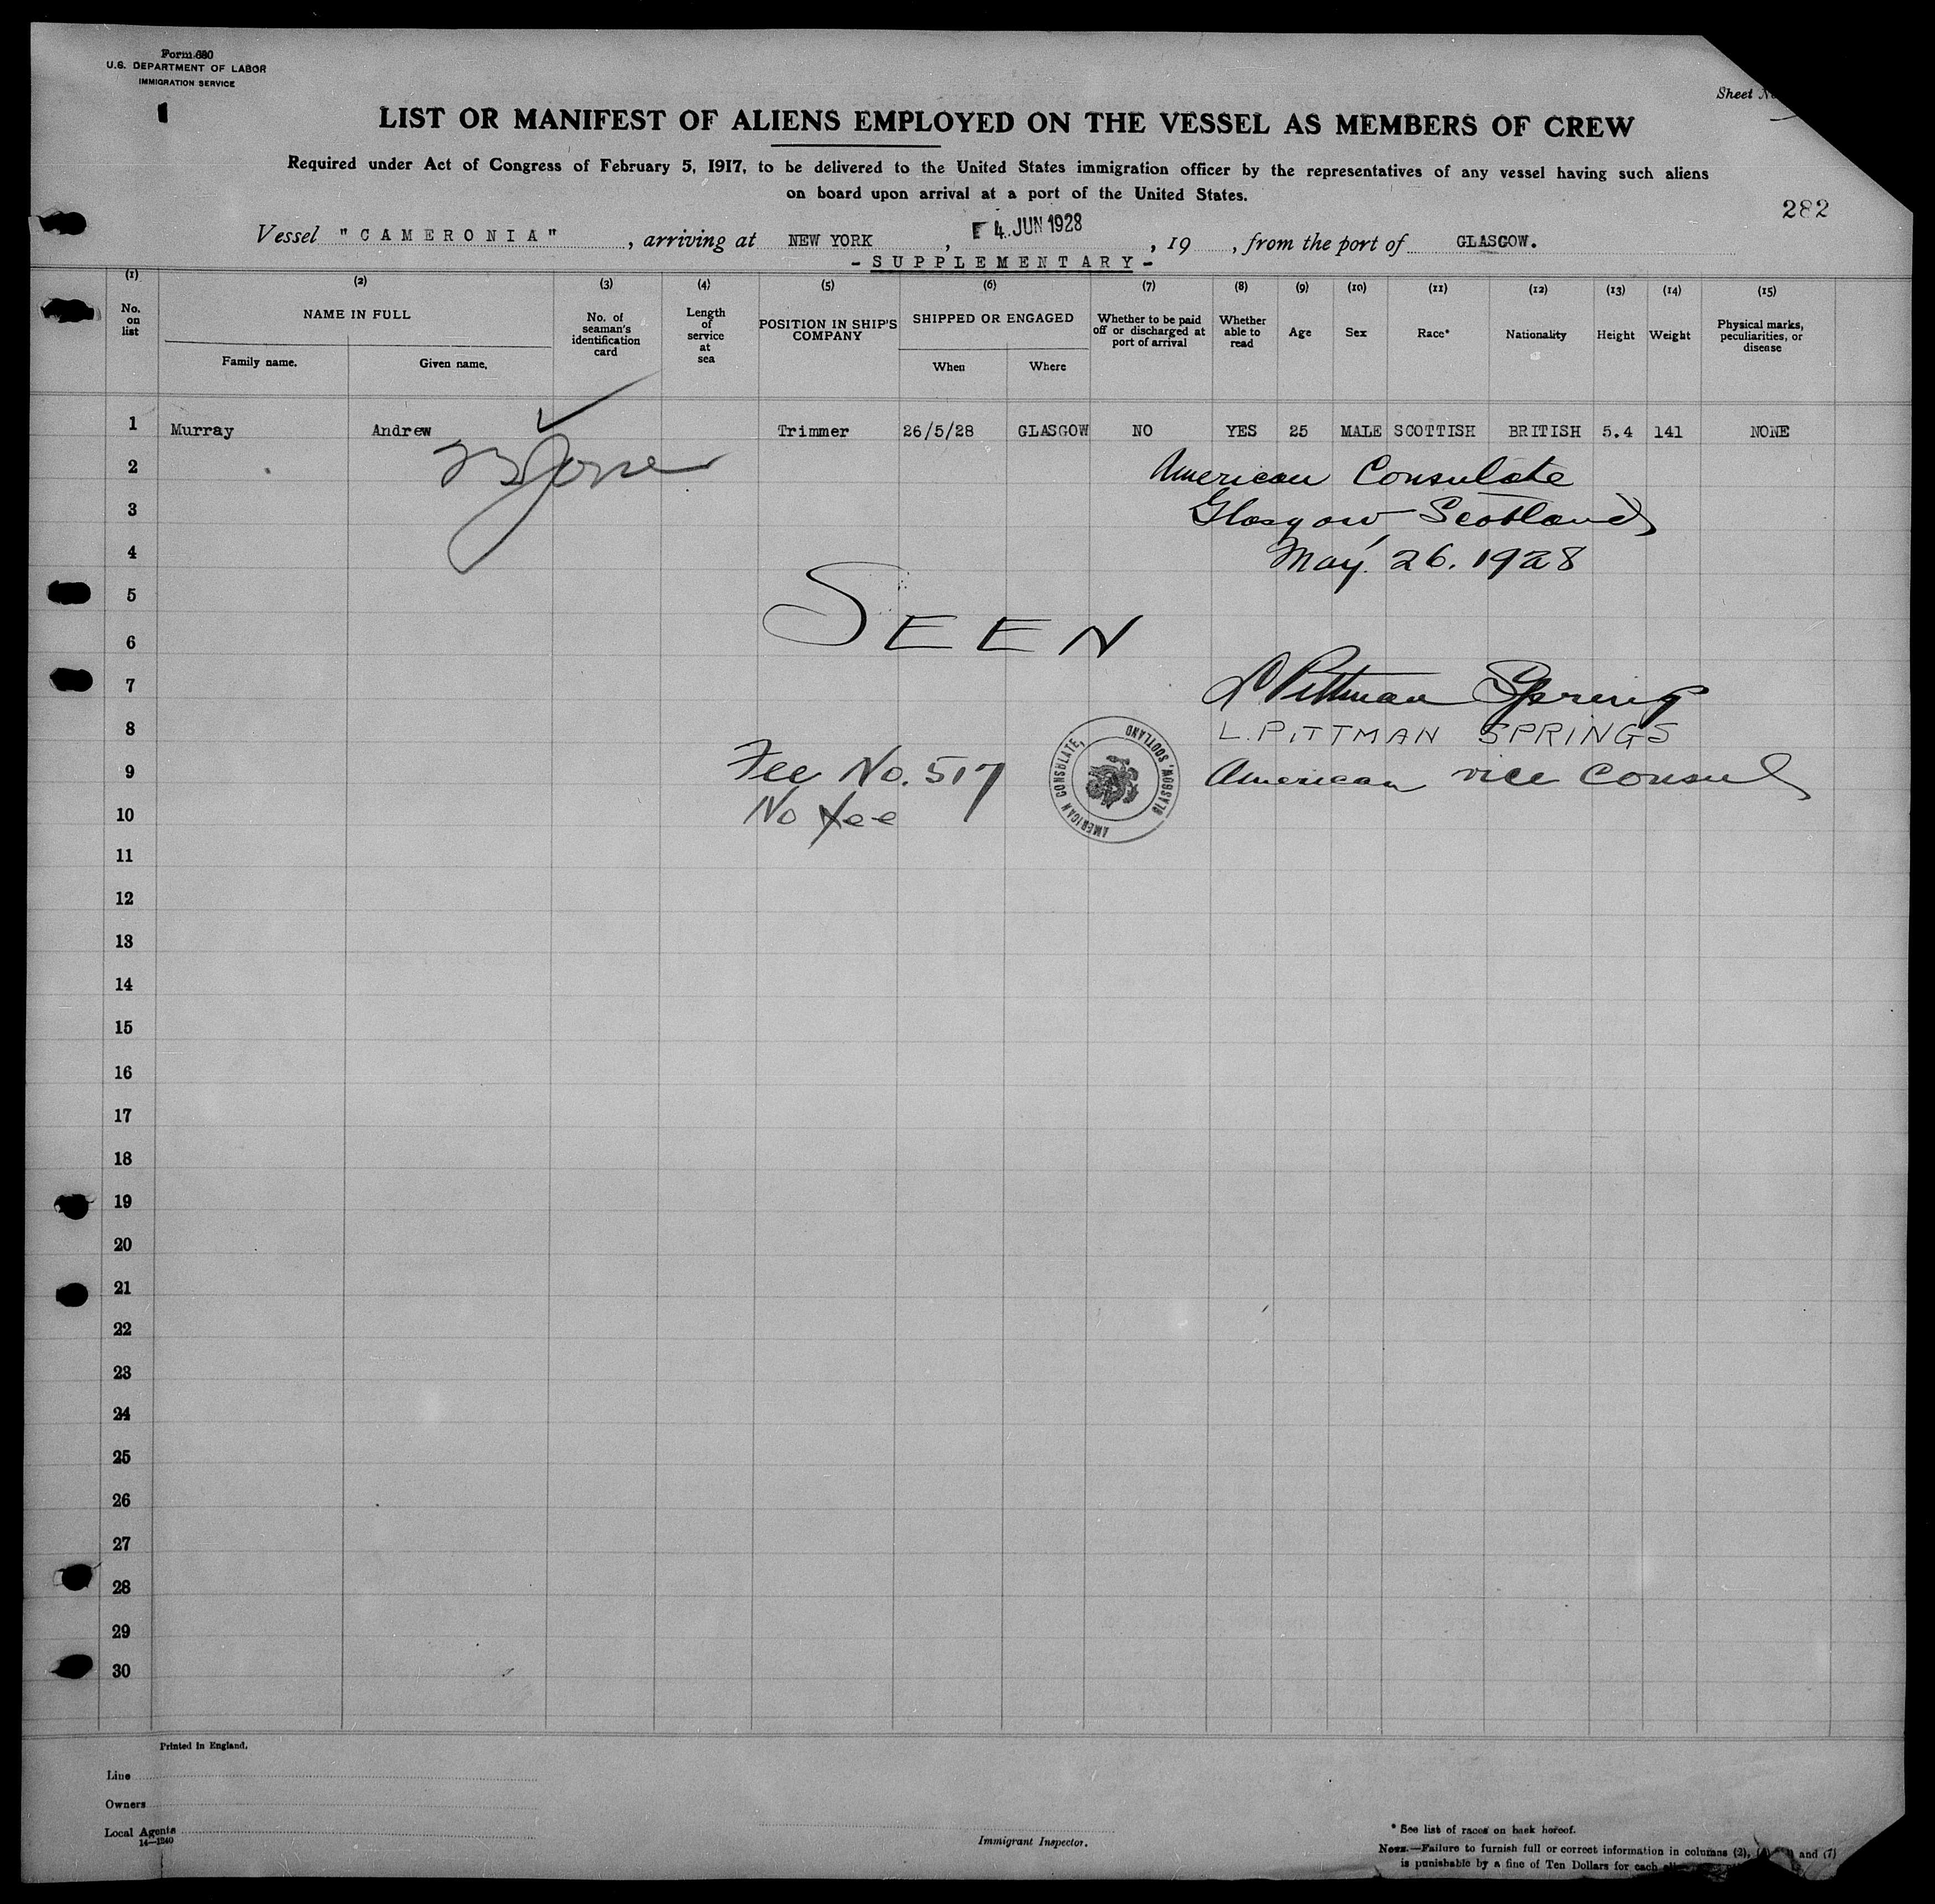 Form 680
U.S. DEPARTMENT OF LABOR
IMMIGRATION SERVICE
Sheet
LIST OR MANIFEST OF ALIENS EMPLOYED ON THE VESSEL AS MEMBERS OF CREW
Required under Act of Congress of February 5, 1917, to be delivered to the United States immigration officer by the representatives of any vessel having such aliens
on board upon arrival at a port of the United States.
282
Vessel "CAMERONIA", arriving at NEW YORK, 4 JUN 1928, 19 , from the port of GLASGOW.
- SUPPLEMENTARY -
(1) (2) (3) (4) (5) (6) (7) (8) (9) (10) (11) (12) (13) (14) (15)
No. on list NAME IN FULL Family name. Given name. No. of seaman's identification card Length of service at sea POSITION IN SHIP'S COMPANY SHIPPED OR ENGAGED When Where Whether to be paid off or discharged at port of arrival Whether able to read Age Sex Race* Nationality Height Weight Physical marks, peculiarities, or disease
1 Murray Andrew Trimmer 26/5/28 GLASGOW NO YES 25 MALE SCOTTISH BRITISH 5.4 141 NONE
2 American Consulate
3 Glasgow Scotland
4 May 26. 1928
5
6 SEEN
7 L Pittman Springs
8 L. PITTMAN SPRINGS
9 Fee No. 517 American vice Consul
AMERICAN CONSULATE, GLASGOW, SCOTLAND
10 No fee
11
12
13
14
15
16
17
18
19
20
21
22
23
24
25
26
27
28
29
30
Printed in England.
Line
Owners
Local Agents
14—1240
Immigrant Inspector.
* See list of races on back hereof.
NOTE.—Failure to furnish full or correct information in columns (2), and (7)
is punishable by a fine of Ten Dollars for each